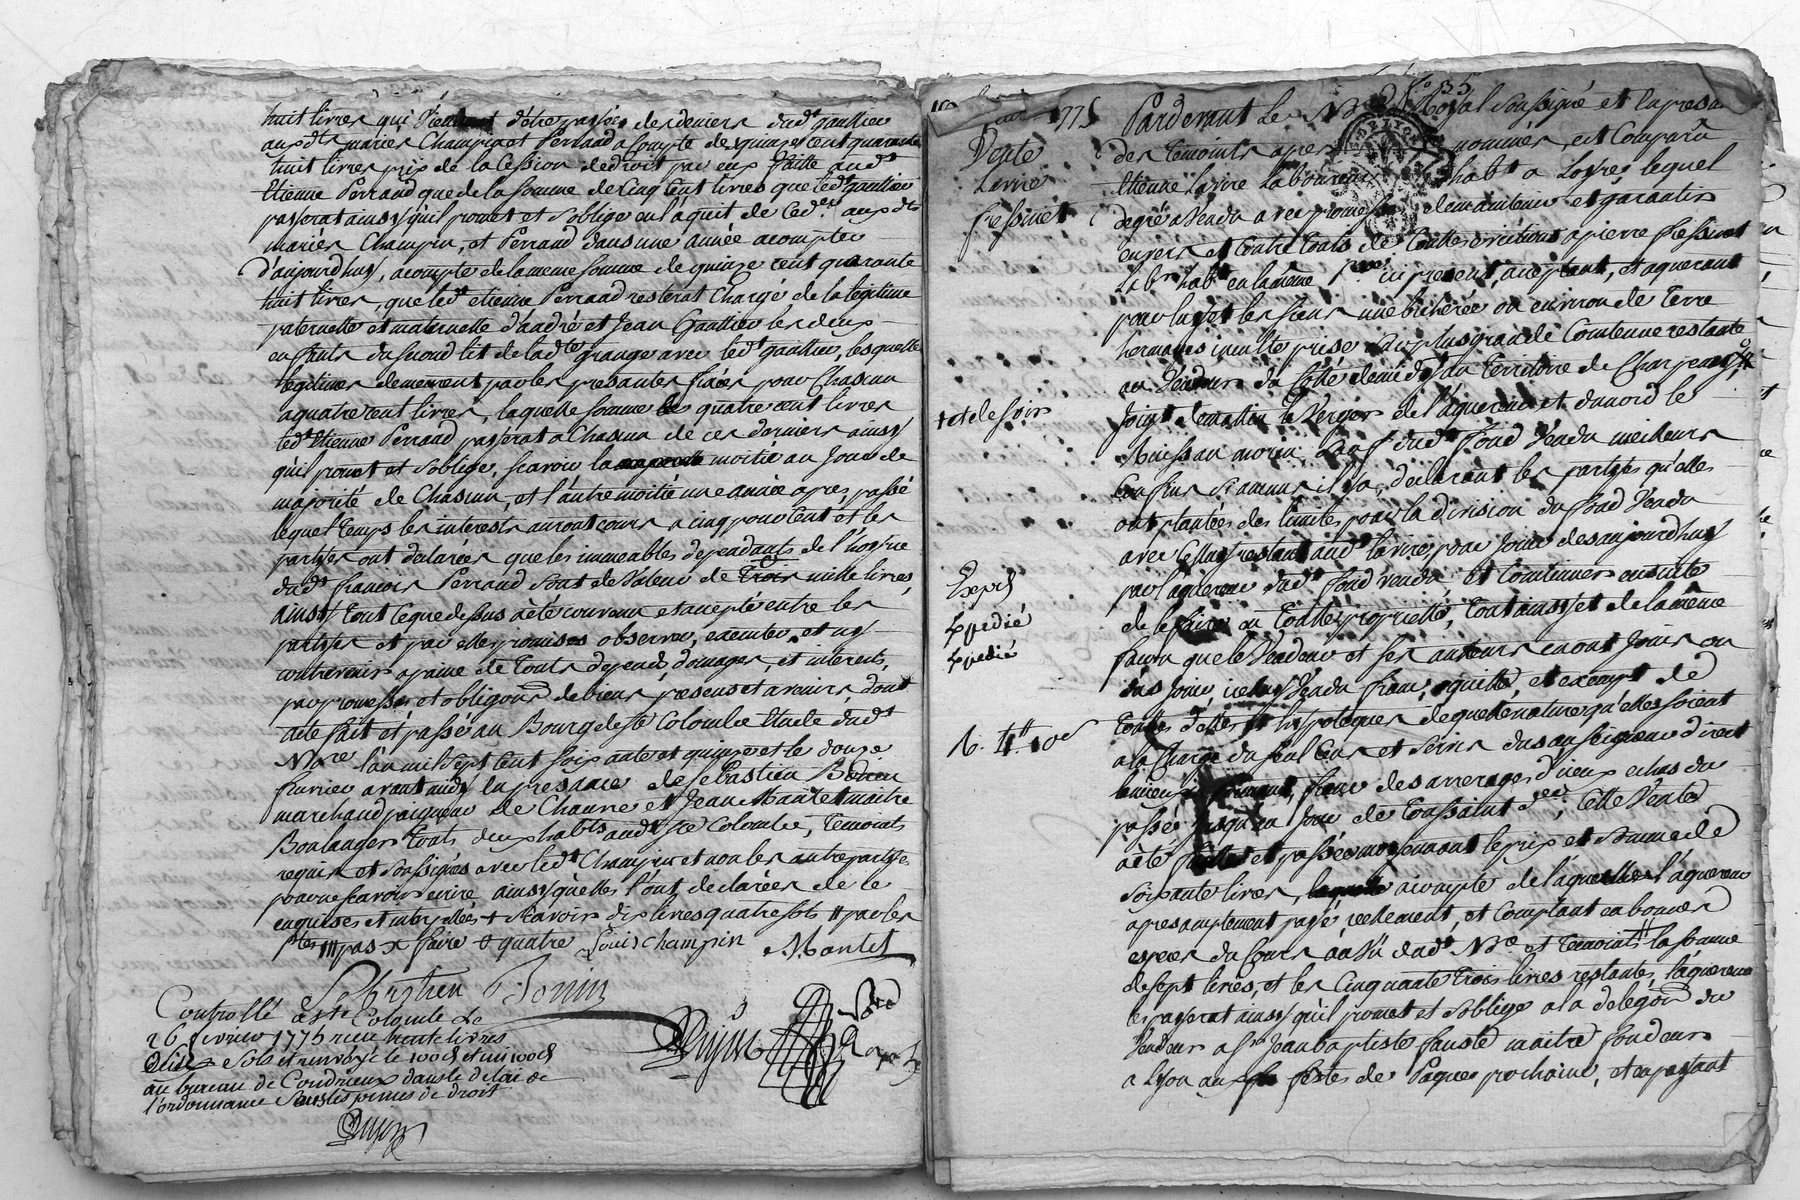 huit livres qui d'être passés des deniers dud.t gaultier
aux d.ts mariés Champin et Perraud a compte des quinze cent quarante
huit livres prix de la Cession de droit par eux faitte aud.t
Etienne Perraud que de la somme de Cinq Cent livres que led.t gaultier
payerat ainsy qu'il promet et s'oblige en l'aquit de Ced.er aux d.ts
mariés Champin, et Perraud dans une année a compter
d'aujourdhuy, acompte de la meme somme de quinze cent quarante
huit livres, que led.t etienne Perraud resterat Chargé de la legitime
paternelle et maternelle d'andré et Jean Gaultier les deux
enffants du second lit de lad.te grange avec led.t gaultier, lesquelles
legitimes demeurent par les presantes fixées pour Chacun
a quatre cent livres, laquelle somme de quatre cent livres
led.t Etienne Perraud payerat a Chacun de ces derniers ainsy
qu'il promet et s'oblige, scavoir la moitié au Jour de
majorité de Chacun, et l'autre moitié une année apres, passé
lequel temps les interests auront cours a cinq pour Cent et les
partyes ont declarées que les immeubles dependants de l'hoyrie
dud.t françois Perraud sont de Valeur de trois mille livres,
ainsy tout ce que dessus a été convenu et accepté entre les
partyes et par elles promises observer, executer et ny
contrevenir a peine de touts depends, domages, et interests,
par promesses et obligons de biens presens et avenirs, dont
acte fait et passé au Bourg de Ste Colombe Etude dud.t
No.re l'an mil sept cent soixante et quinze et le douze
fevrier avant midy en presance de Sebastien Bonin
marchand peigneur de Chanvre et Jean Mantel maitre
Boulanger touts deux hab.ts aud.t Ste Colombe, temoints
requis et soussignés avec led.t Champin et non les autre partyes
pour ne scavoir ecrire ainsy qu'elles l'ont declarées de ce
enquises et interpellées + scavoir dix livres quatre sols # par les
p.tes /// pas x faire + quatre Louis champin Mantel
Sebastien Bonin
Controllé a Ste Colombe le
26 fevrier 1775 recu huit livres
Sols et renvoyé le 100e et mi 100e
au bureau de Condrieux dans le delai de
l'ordonnance Sous les peines de droit
Dujon
Dujon
f.o 35
1775 Pardevant Le No.re Royal Soussigné et la presance
Vente
des temoints apres nommés, est Comparu
Larue
Etienne Larue Laboureur hab.t a Loyre, lequel
fressinet
degré a Vendu avec promesse de maintenir et garantir
envers et Contre touts de touttes evictions a pierre fressinet
Lab.r hab.t en la même P.sse icy present, aceptant, et aquerant
pour luy et les siens une bicherée ou environ de terre
hermages inculte prise au plus grande Contenue restante
au Vendeur du Côté de midy au territoire de Charpenay
+ et de soir
Joint de matin le Verger de l'aquereur et du nord le
Ruissau morin, sauf dud.t fond Vendu meilleurs
Confins si aucuns il y a, declarant les partyes qu'elles
ont plantées des limites pour la division du fond Vendu
avec Celluy restant aud.t larue, pour Jouir des aujourdhuy
Exp.d
par l'aquereur dud.t fond vendu, et Continuer ensuitte
Expedié
de le faire en toutte proprieté, tout ainsy et de la même
Expedié
facon que le Vendeur et ses auteurs en ont Jouis ou
dus Jouir, icelluy Vendu franc, quitte, et exempt de
touttes dettes et hypoteques de quelle nature qu'elles soient
a la Charge du seul Cens et Servis dus au seigneur direct
franc des arrerages d'iceux echus du
passé Jusqu'au Jour de toussaint d.er Cette Vente
a été faitte et passée moyennant le prix et somme de
soixante livres, acompte de laquelle l'aquereur
a presentement payé reellement, et Comptant en bonnes
especes du Cours au Vû dud.t No.re et temoints la somme
de sept livres, et les Cinquante trois livres restantes, l'aquereur
les payerat ainsy qu'il promet et s'oblige a la delegaon du
Vendeur a S.r Jean baptiste fauste maitre fondeur
a Lyon aux festes de Paques prochaine, et en payant